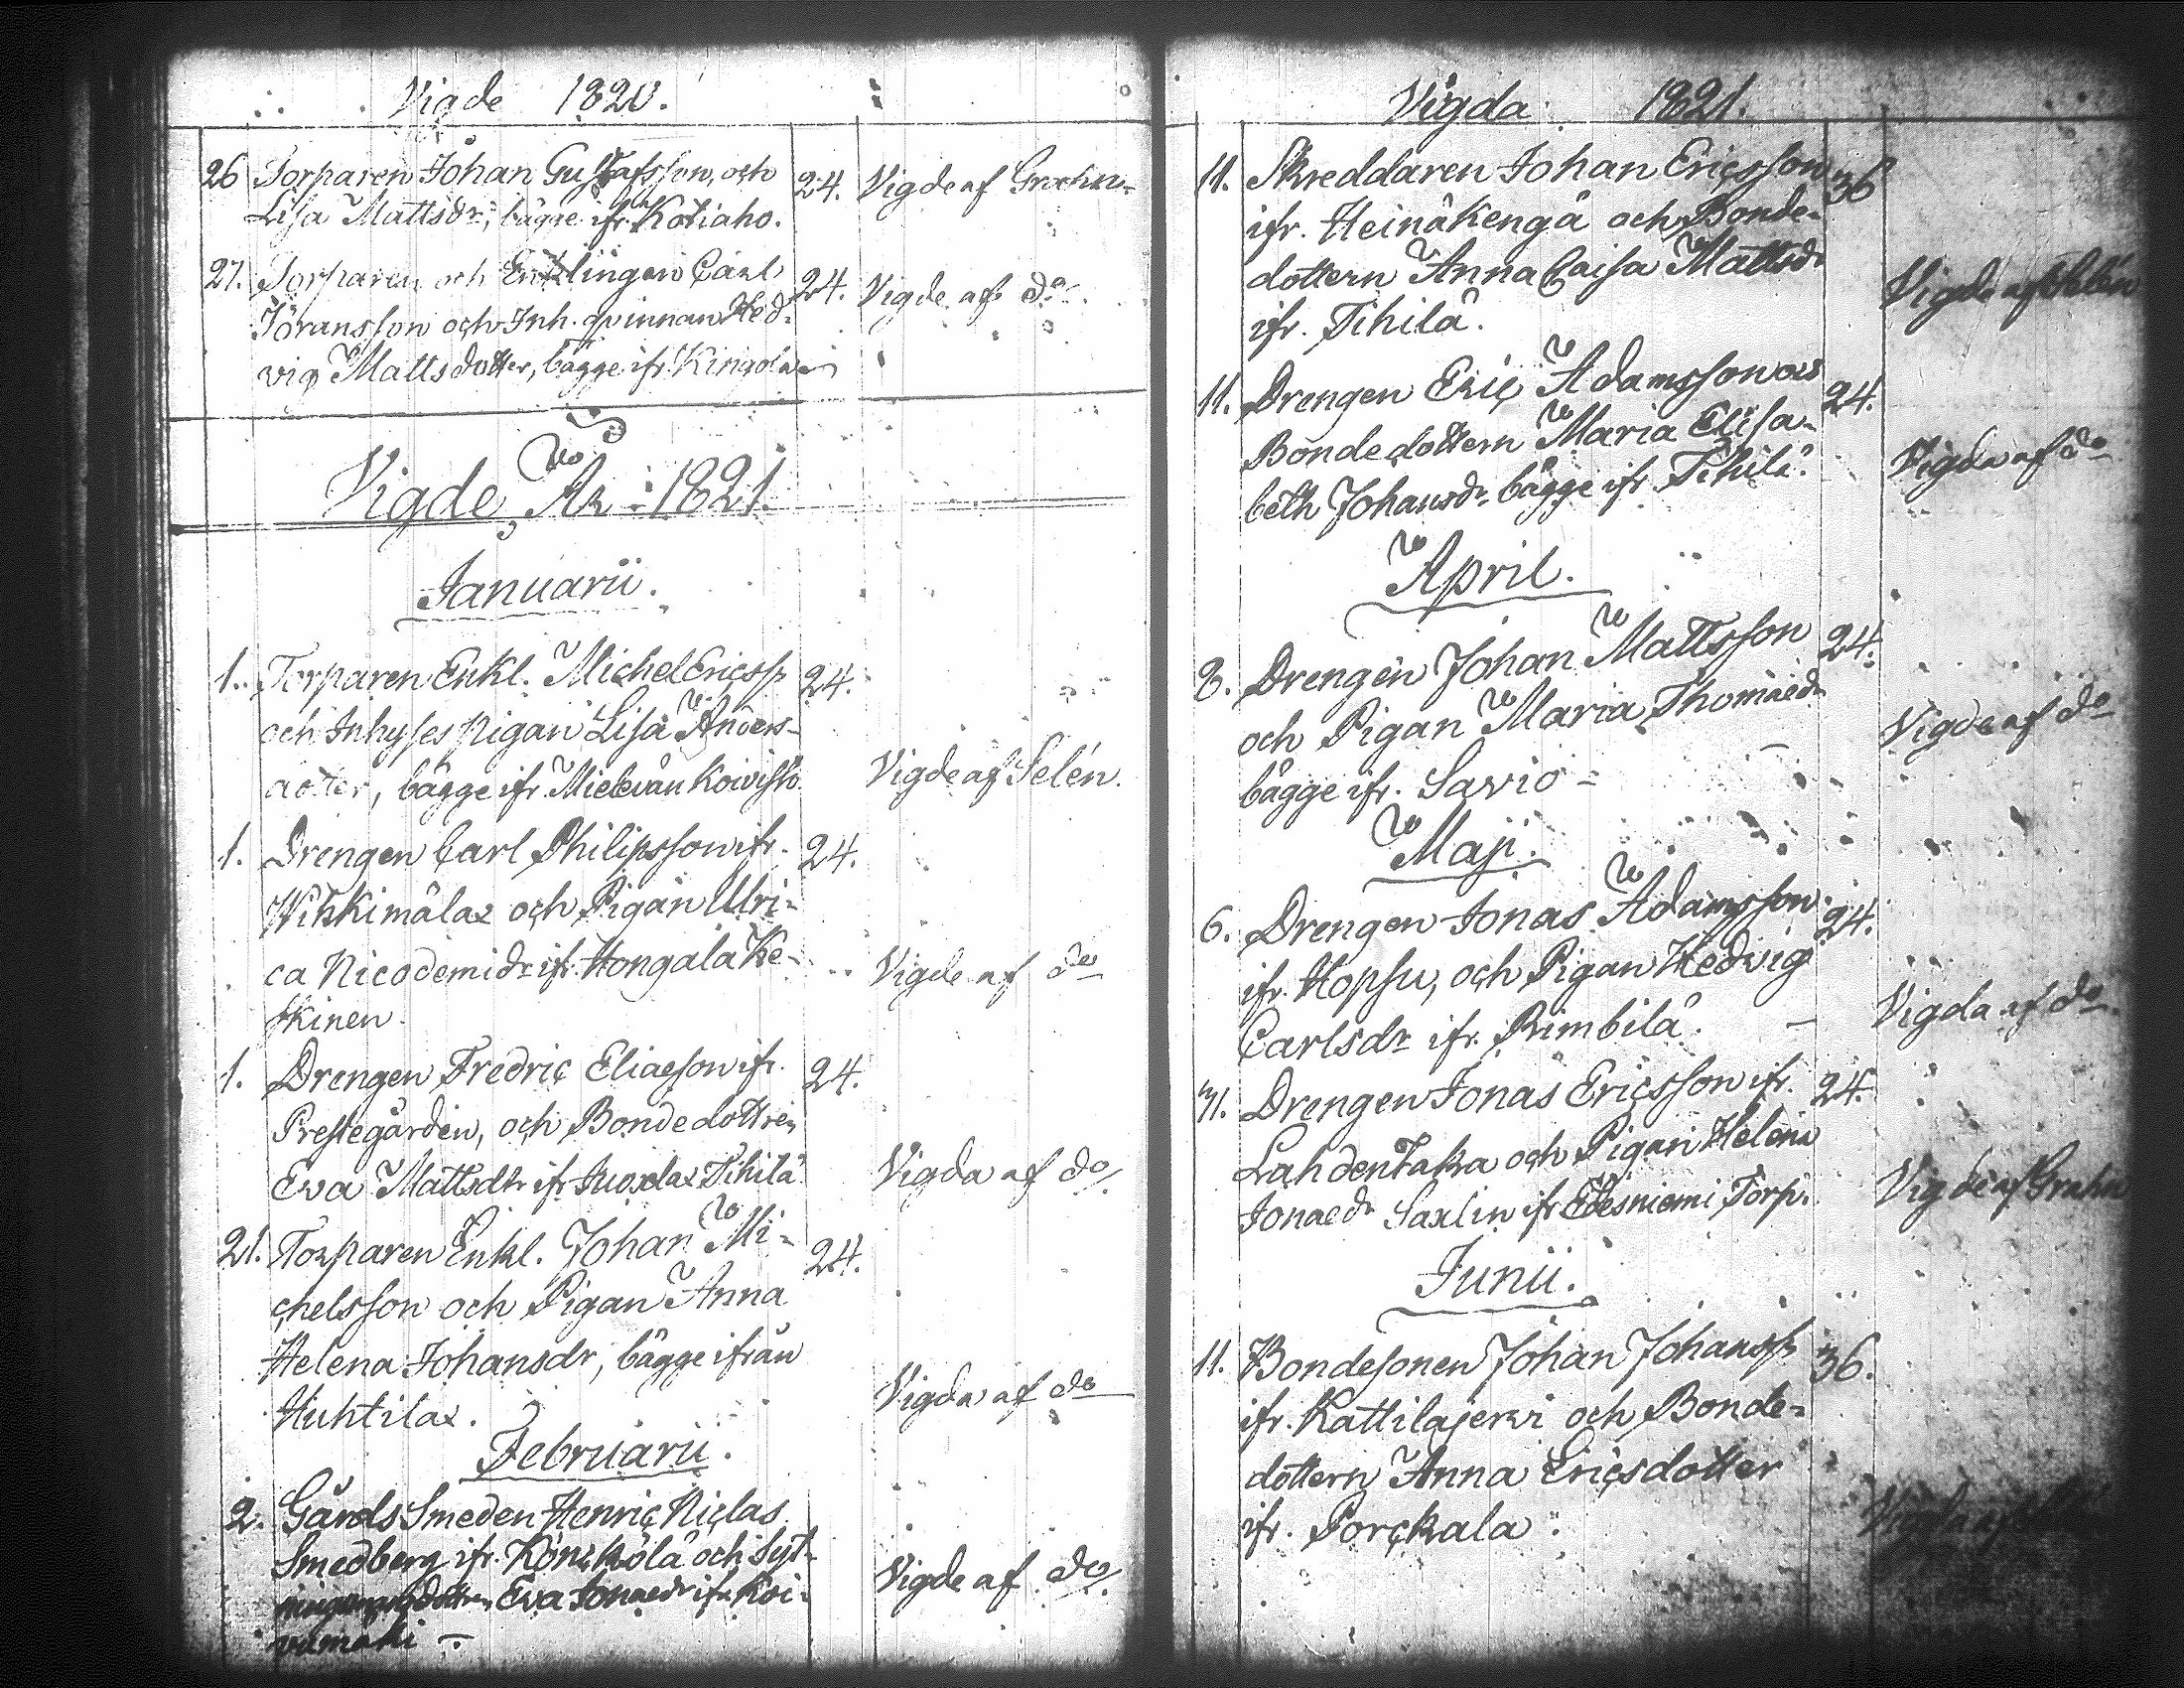 Vigde 1820.
26 Torparen Johan Gustafsson, och 24. Vigde af Grahn
Lisa Mattsdr, bägge ifr. Kotiaho.
27. Torparen och Enklingen Carl 24. Vigde af do
Jöransson och Inh. qvinnan Hed-
vig Mattsdotter, bägge ifr.
Vigde År 1821.
Januarii.
1. Torparen Enkl. Michel Ericss. 24.
och Inhyses pigan Lisa Anders-
dotter, bägge ifr. Vigde af Selén.
1. Drengen Carl Philipsson ifr. 24.
Wikkimälax och Pigan Ulri-
ca Nicodemidr ifr. Hongala Ke- Vigde af do
skinen.
1. Drengen Fredric Eliaesson ifr. 24.
Prestegården, och Bondedottren
Eva Mattsdtr ifr. Tihilä. Vigda af do
21. Torparen Enkl. Johan Mi- 24.
chelsson och Pigan Anna
Helena Johansdr, bägge ifrån
Huhtilax. Vigda af do
Februarii.
2. Gårds Smeden Henric Niclas
Smedberg ifr. Könckölä och Syt-
Eva Jonaedr ifr. Koi- Vigde af do
vumäki
Vigda 1821.
11. Skreddaren Johan Ericsson 36
ifr. Heinäkengä och Bonde-
dottern Anna Caisa Mattsdr Vigde af Selén
ifr. Tihilä.
11. Drengen Eric Adamsson och 24.
Bondedottern Maria Elisa-
beth Johansdr bägge ifr. Tihilä. Vigda af do
April.
8. Drengen Johan Mattsson 24.
och Pigan Maria Thomaedr
bägge ifr. Savio - Vigda af do
Maji.
6. Drengen Jonas Adamsson 24.
ifr. Hopsu, och Pigan Hedvig
Carlsdr ifr. Rimbilä. Vigda af do
31. Drengen Jonas Ericsson ifr. 24.
Lahdentaka och Pigan Helena
Jonaedr Saxlin ifr. Edesniemi Torp. Vigde af Grahn
Junii.
11. Bondesonen Johan Johanss. 36.
ifr. Kattilajervi och Bonde-
dottern Anna Ericsdotter
ifr. Porckala. Vigda af